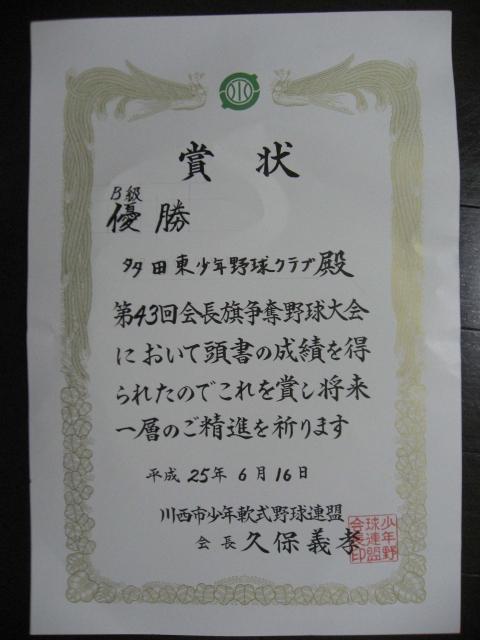 賞状
B級
優勝
多田東少年野球クラブ殿
第43回会長旗争奪野球大会
において頭書の成績を得
られたのでこれを賞し将来
一層のご精進を祈ります
平成25年6月16日
川西市少年軟式野球連盟
会長久保義孝
少年野
球連盟
会長印